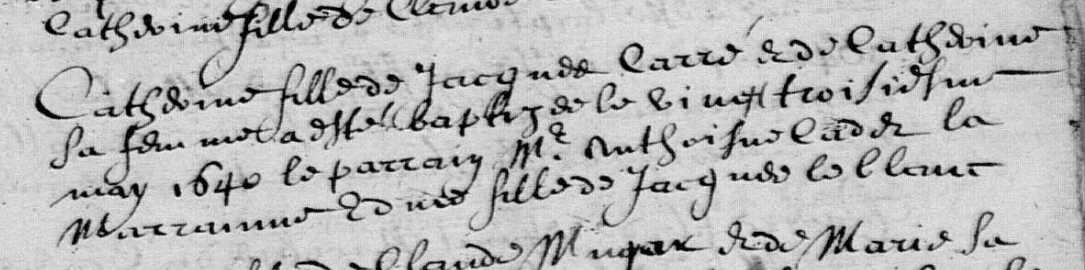 Catherine fille de Clemen
Catherine fille de Jacques Carré & de Catherine
sa femme a esté baptizee le vingt troisiesme
may 1640 le parrain Mr. Anthoisne Cader la
Marrainne Edmee fille de Jacques le blanc
Claude Mugar & de Marie sa